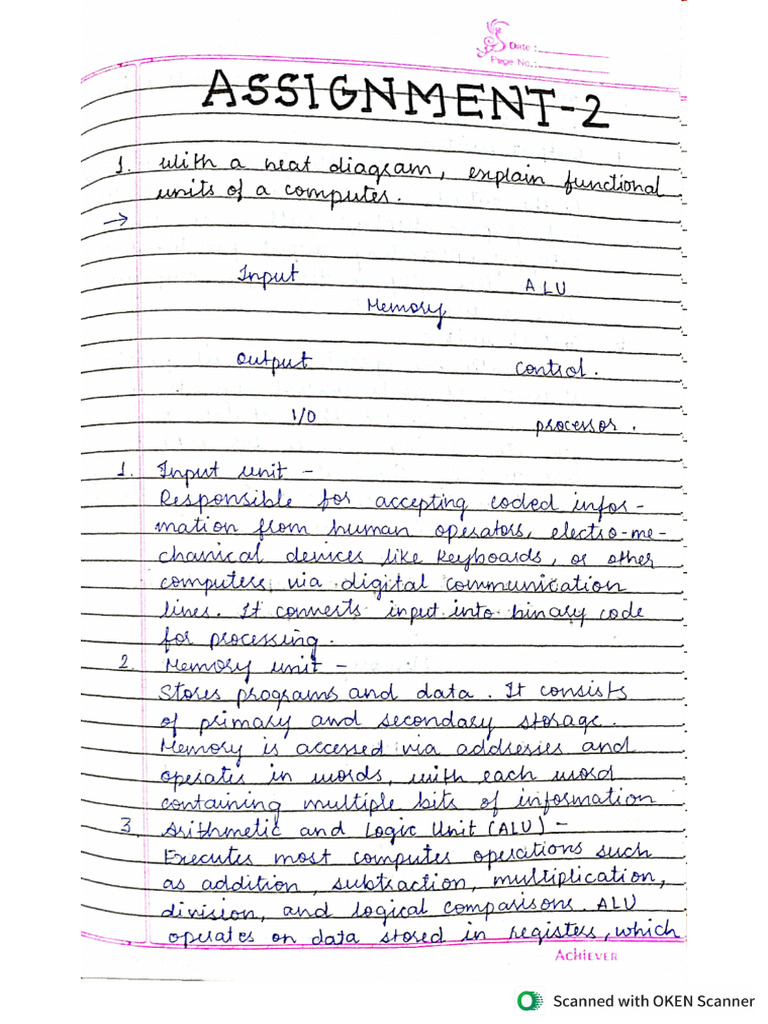 Date :
Page No.:
ASSIGNMENT-2
1. With a neat diagram, explain functional
units of a computer.
→
Input ALU
Memory
Output control.
I/O processor.
1. Input unit -
Responsible for accepting coded infor-
mation from human operators, electro-me-
chanical devices like keyboards, or other
computers via digital communication
lines. It converts input into binary code
for processing.
2. Memory unit -
Stores programs and data. It consists
of primary and secondary storage.
Memory is accessed via addresses and
operates in words, with each word
containing multiple bits of information
3. Arithmetic and Logic Unit (ALU) -
Executes most computer operations such
as addition, subtraction, multiplication,
division, and logical comparisons. ALU
operates on data stored in registers, which
ACHIEVER
Scanned with OKEN Scanner